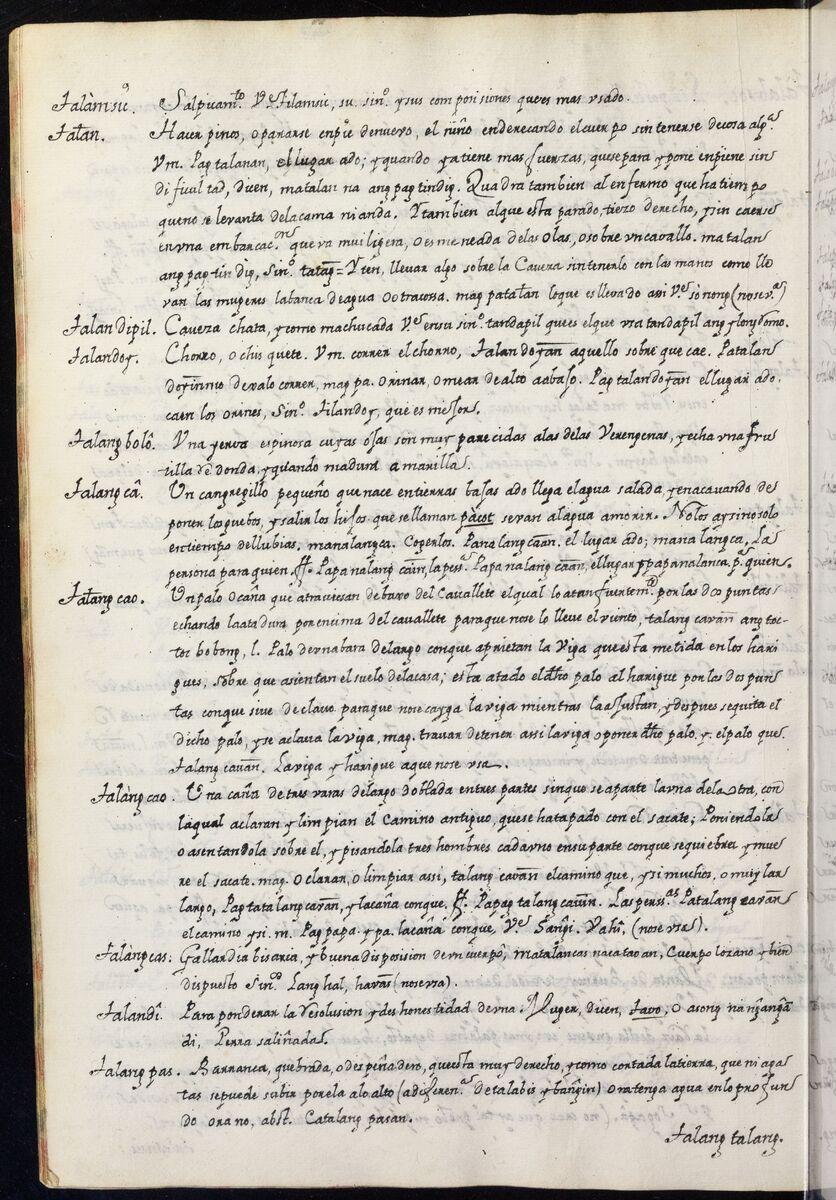 Talàmsic. Salpicam.to V.e Tilamsic, su sin.o y sus composiciones que es mas vsado.
Tatan. Hacer pinos, o pararse enpie denuevo, el niño enderecando el cuerpo sin tenerse de cosa alg.a
Vm. Pag talanan, el lugar ado; y quando ya tiene mas fuerzas, que se para y pone en piene sin
dificultad, dicen, matalan na ang pag tindig. Quadra tambien al enfermo que ha tiempo
que no se levanta de la cama ni anda. Y tambien al que esta parado, tiezo derecho, y sin caerse
en vna embarcac.on que va mui ligera, o es meneada de las olas, o sobre vn cavallo. matalan
ang pag tin dig, Sin.o tatag= Yten, llevar algo sobre la Caveza sin tenerlo con las manos como lle
van las mugeres la banca de agua o otra cossa. mag patalan lo que es llevado assi V.e sonong (no se v.a)
Talandipil. Caveza chata, y como machucada V.e en su sin.o tandapil que es el que vsa tandapil ang olong domo.
Talandoy. Chorro, o chisquete. Vm. correr el chorro, Talandoyan aquello sobre que cae. Patalan
doyin no dexalo correr, mag pa. orinar, o mear de alto abaso. Pag talandoyan el lugar ado.
caen los orines, Sin.o Tilandoy, que es mesor.
Talang bolô. Vna yerva espinosa cuyas osas son muy parecidas alas delas Verengenas, y echa vna fru
tilla redonda, y quando madura amarilla.
Talang câ. Un cangregillo pequeño que nace en tierras bajas ado llega el agua salada, y en acavando de
poner los guebos, y salir los hijos que se llaman pàcot se van al agua a morir. No los ay sino solo
en tiempo de llubias. manalangca. Cogerlos. Pana lang caan. el lugar ado; mana langca, La
persona para quien, ff. Papa na lang cain, la pers.a Papa na lang caan, el lugar papanalanca, p.a quien.
Tatang cao. Un palo o caña que atraviesan de baxo del Cavallete el qual lo atan fuertem.te por las dos puntas
echando la atadura por encima del cavallete para que no se lo lleve el viento, talang cavan ang toc-
toc bobong, l. Palo de vna bara de largo con que aprietan la viga que esta metida en los hari
gues, sobre que asientan el suelo de la casa; esta atado el dho palo al harigue por las dos pun
tas con que sirve de clavo para que no se cayga la viga mientras la ajustan, y despues se quita el
dicho palo, y se aclava la viga, mag. travar detener assi la viga o poner dho palo. y. el palo que.
Talang cauan. La viga y harigue aque no se vsa.
Talàng cao. Una caña de tres varas de largo doblada en tres partes sin que se aparte la vna de la otra, con
la qual aclaran y limpian el camino antiguo, que se ha tapado con el sacate; Poniendola
o asentandola sobre el, y pisandola tres hombres cada vno en su parte con que se quiebre y mue
re el sacate. mag. O clarar, o limpiar assi, talang cavan el camino que, y si muchos, o muy lar
largo, Pag tatalang cavan, y la caña conque, ff. Papag talang cauin. Las pers.as Patalang cavan
el camino y si. m. Pag papa. y pa. la caña conque, V.e Sangi. Vahi, (no se vsa).
Talàngcas. Gallardia bisaria, y buena disposision de vn cuerpo, matalancas na cataoan, Cuerpo lozano y bien
dispuesto Sin.o Lang hal, havas (no se vsa).
Talandî. Para ponderar la resolusion y deshonestidad de vna. Muger, dicen, tavo, o asong nangangan
di, Perra saliñada.
Talang pas. Barranca, quebrada, o despeñadero, que esta muy derecho, y como cortada la tierra, que ni aga
tas se puede subir por ela alo alto (adiferen.a de talabis y bangin) ora tenga agua en lo profun
do ora no, abst. Catalang pasan.
Talang talang.